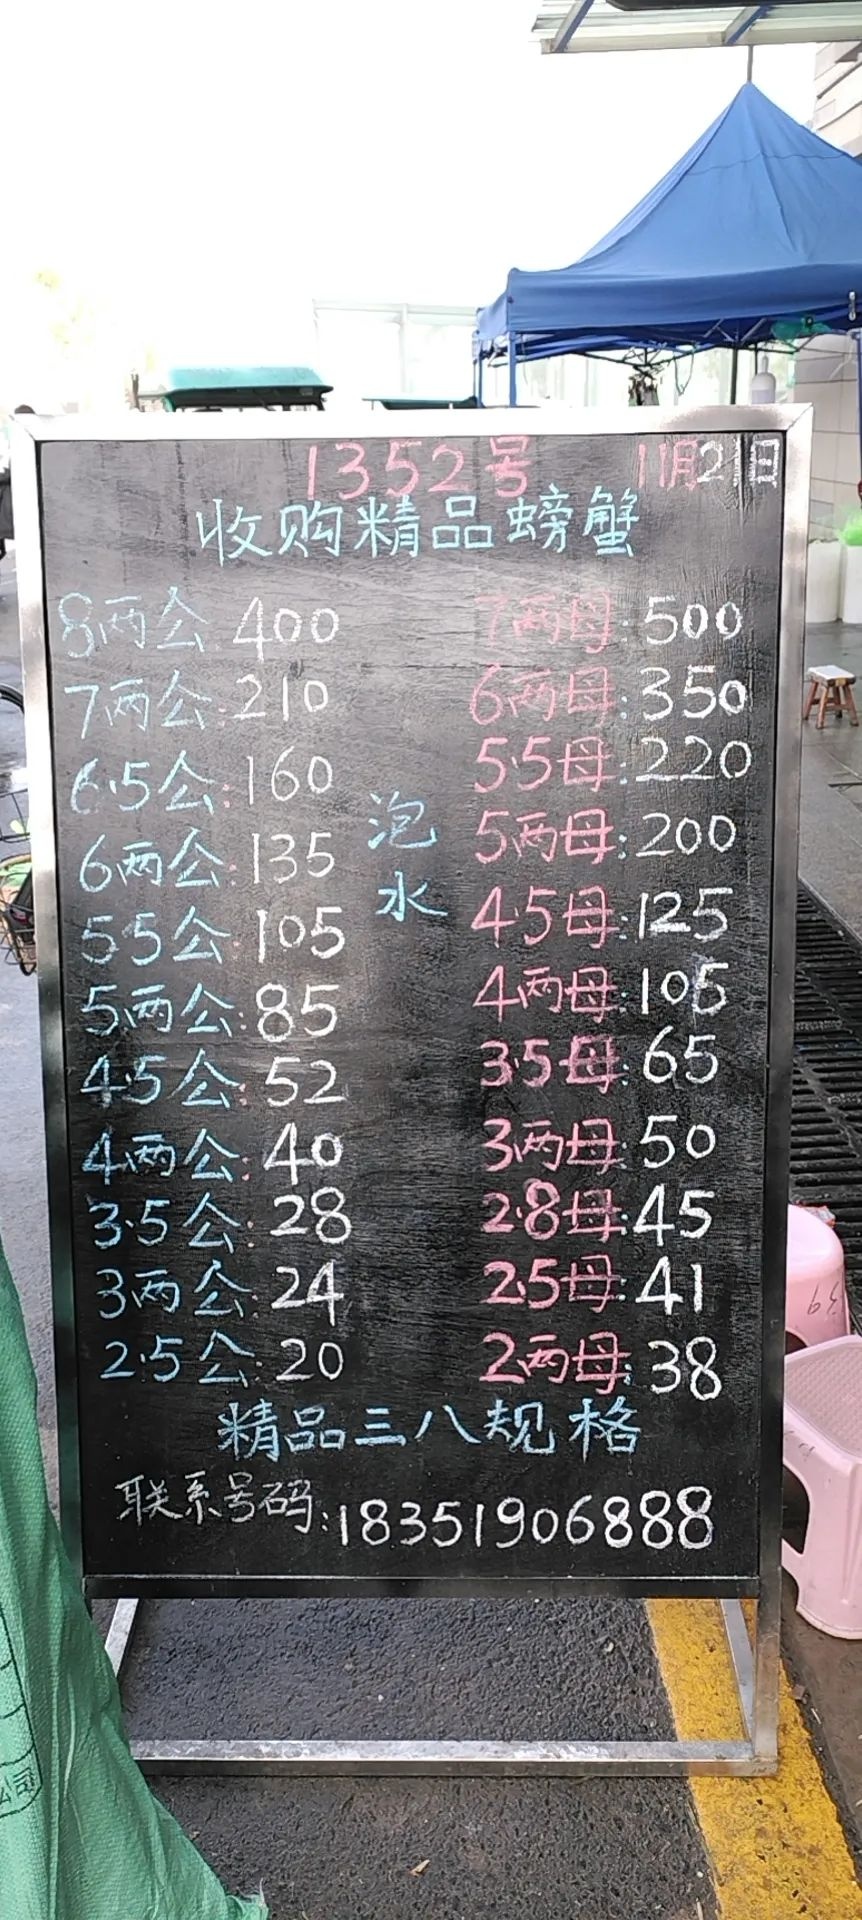 1352号 11月21日
收购精品螃蟹
8两公:400 7两母:500
7两公:210 6两母:350
6.5公:160 5.5母:220
6两公:135 5两母:200
泡水
5.5公:105 4.5母:125
5两公:85 4两母:105
4.5公:52 3.5母:65
4两公:40 3两母:50
3.5公:28 2.8母:45
3两公:24 2.5母:41
2.5公:20 2两母:38
精品三八规格
联系号码:18351906888